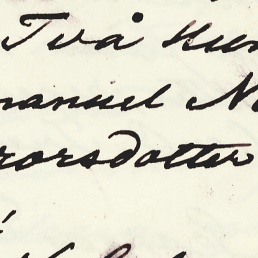 Två hun
manuel N
rorsdotter